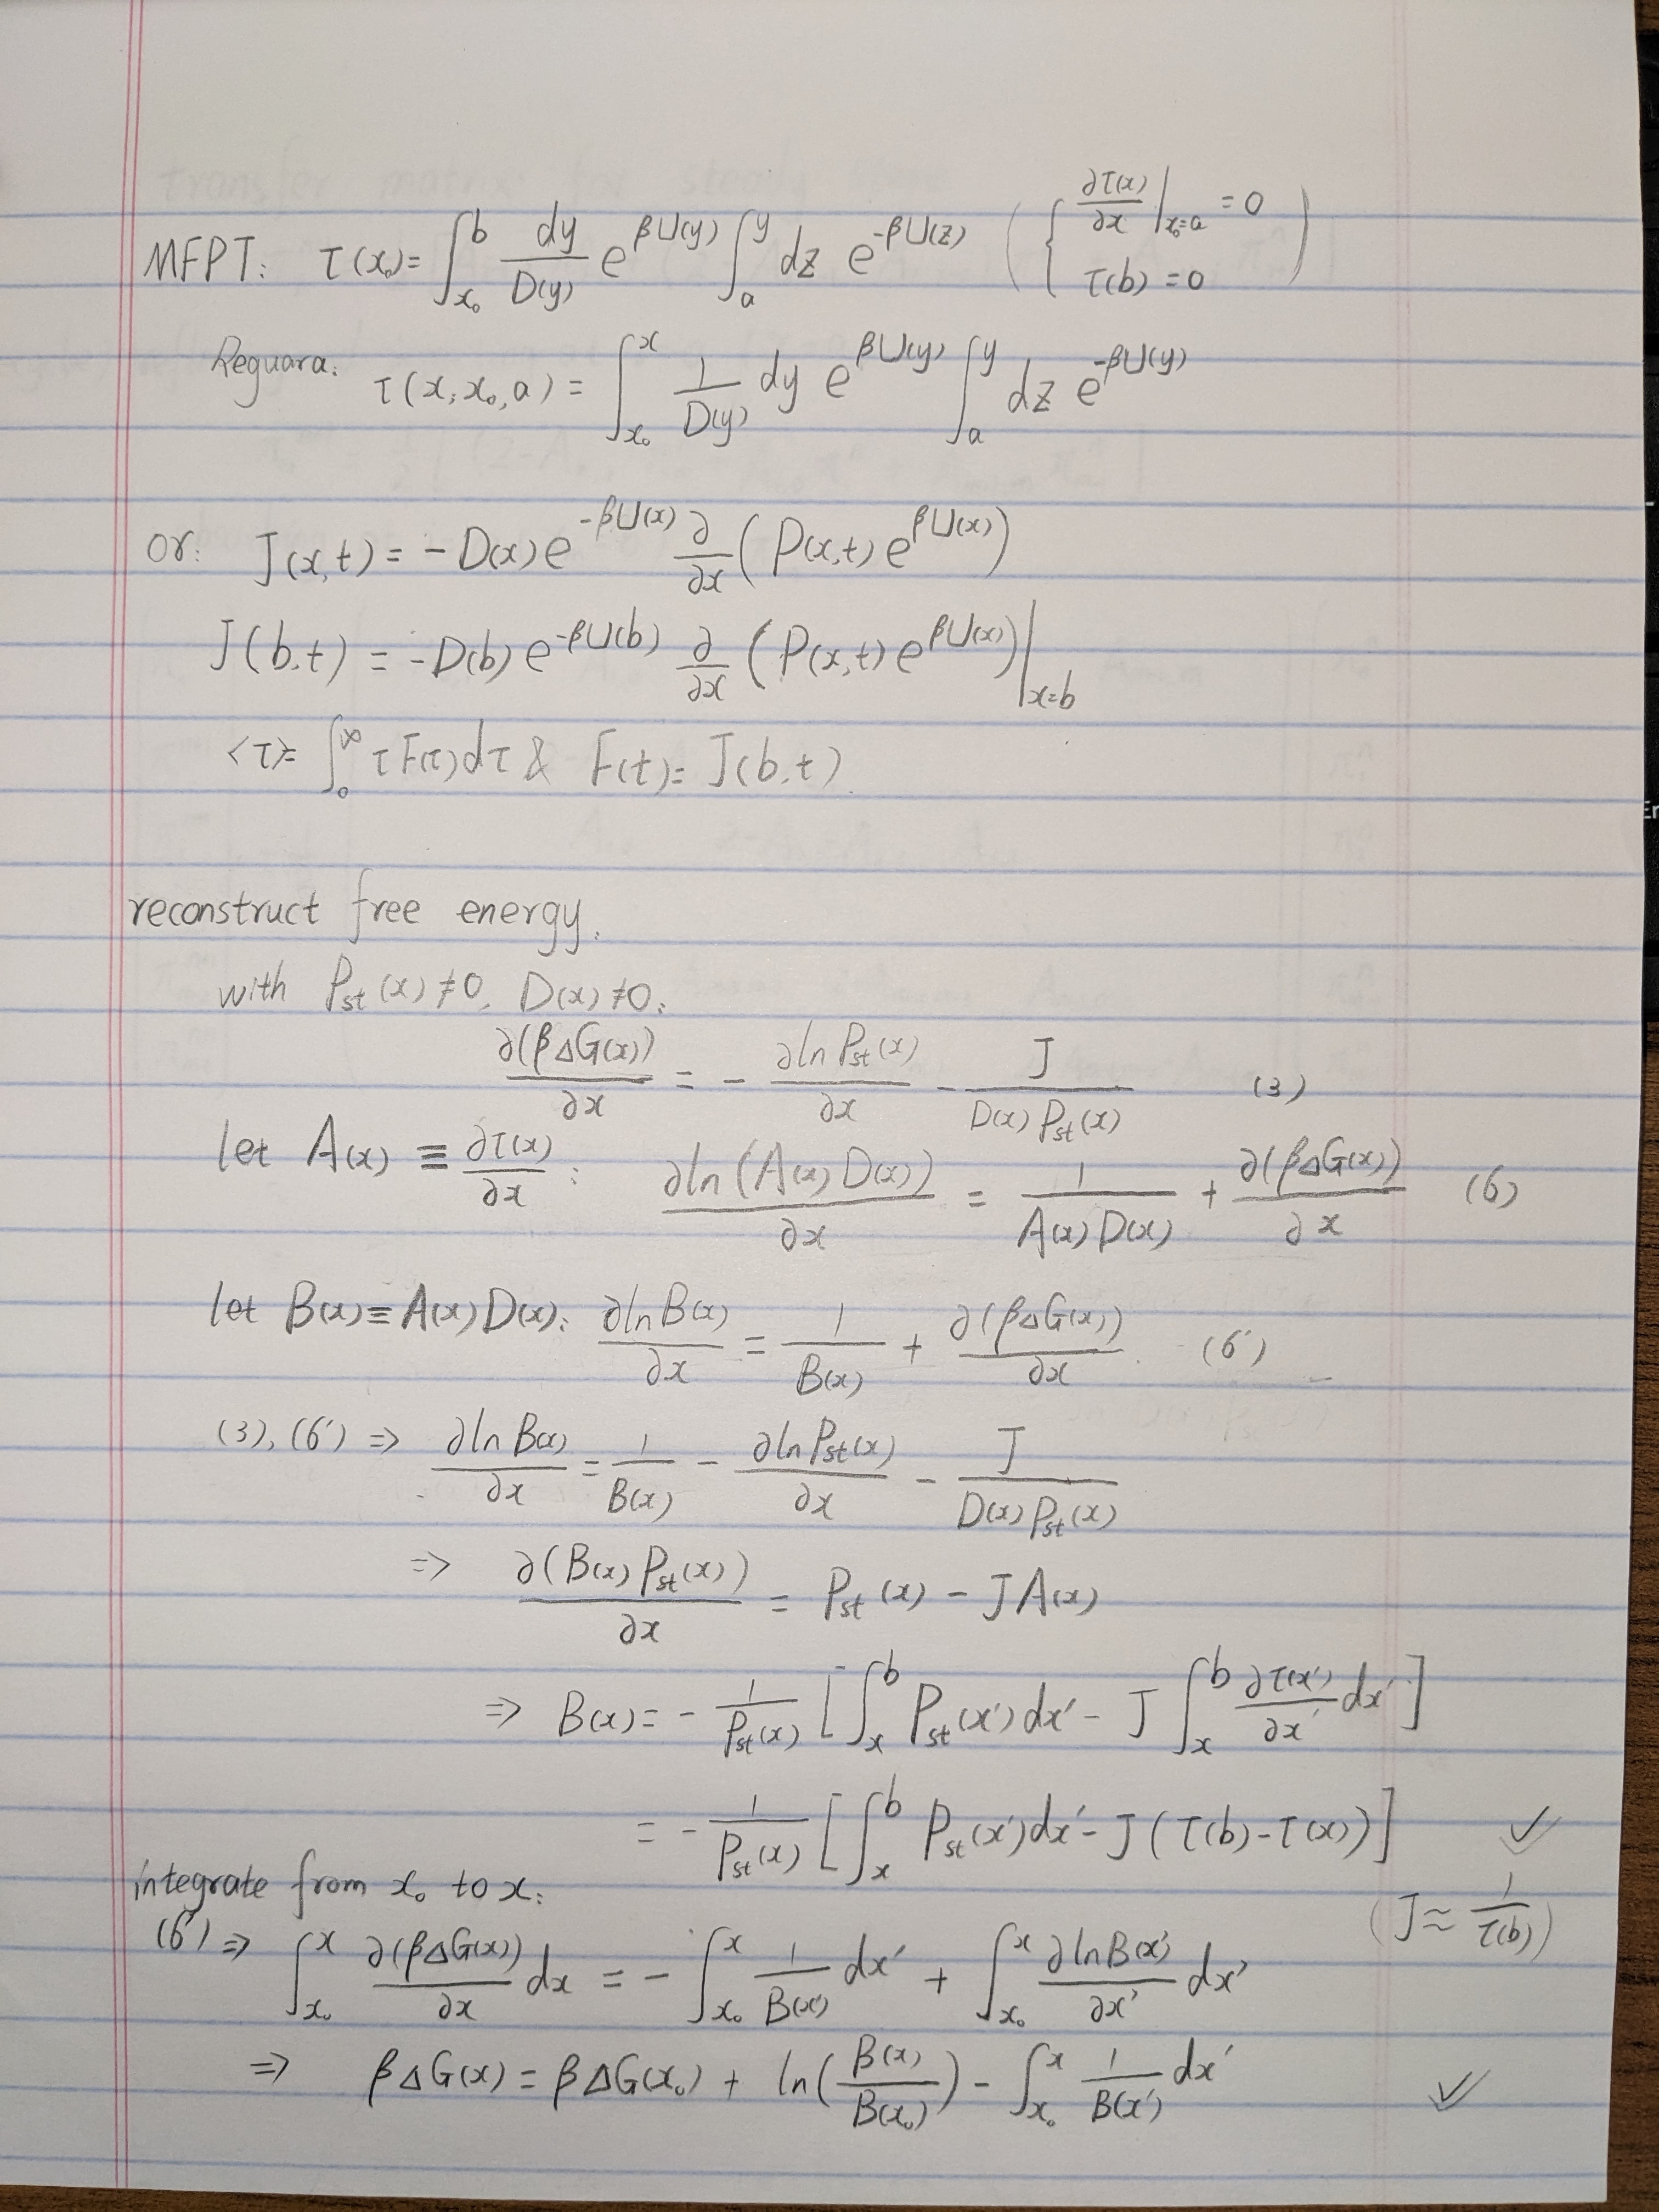 MFPT: τ(x₀) = ∫_{x₀}^{b} dy/D(y) e^{βU(y)} ∫_a^y dz e^{-βU(z)} ( { ∂τ(x)/∂x |_{x₀=a} = 0
τ(b) = 0 )
Reguara: τ(x; x₀, a) = ∫_{x₀}^{x} 1/D(y) dy e^{βU(y)} ∫_a^y dz e^{-βU(y)}
or: J(x,t) = -D(x) e^{-βU(x)} ∂/∂x (P(x,t) e^{βU(x)})
J(b,t) = -D(b) e^{-βU(b)} ∂/∂x (P(x,t) e^{βU(x)}) |_{x=b}
<τ> = ∫_0^∞ τ F(τ) dτ & F(t) = J(b,t).
reconstruct free energy:
with P_st(x) ≠ 0, D(x) ≠ 0:
∂(βΔG(x))/∂x = - ∂ln P_st(x)/∂x - J/(D(x) P_st(x)) (3)
let A(x) ≡ ∂τ(x)/∂x : ∂ln(A(x) D(x))/∂x = 1/(A(x) D(x)) + ∂(βΔG(x))/∂x (6)
let B(x) ≡ A(x) D(x): ∂ln B(x)/∂x = 1/B(x) + ∂(βΔG(x))/∂x. (6')
(3), (6') ⇒ ∂ln B(x)/∂x = 1/B(x) - ∂ln P_st(x)/∂x - J/(D(x) P_st(x))
⇒ ∂(B(x) P_st(x))/∂x = P_st(x) - J A(x)
⇒ B(x) = - 1/P_st(x) [ ∫_x^b P_st(x') dx' - J ∫_x^b ∂τ(x')/∂x' dx' ]
= - 1/P_st(x) [ ∫_x^b P_st(x') dx' - J (τ(b) - τ(x)) ] ✓
integrate from x₀ to x: (J ≈ 1/τ(b))
(6') ⇒ ∫_{x₀}^x ∂(βΔG(x))/∂x dx = - ∫_{x₀}^x 1/B(x') dx' + ∫_{x₀}^x ∂ln B(x')/∂x' dx'
⇒ βΔG(x) = βΔG(x₀) + ln(B(x)/B(x₀)) - ∫_{x₀}^x 1/B(x') dx' ✓